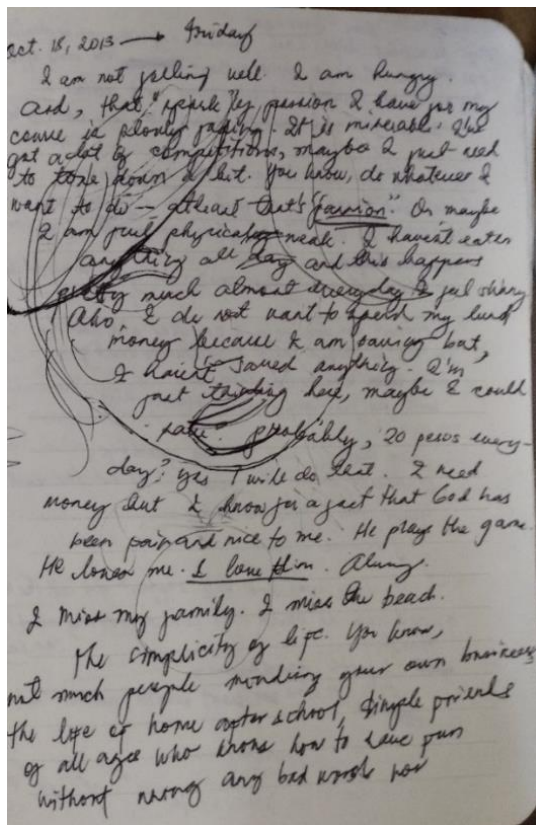 oct. 18, 2013 → Friday
I am not feeling well. I am hungry.
And, that "spark"ly passion I have for my
course is slowly fading. It is miserable. I've
got a lot of competitions, maybe I just need
to tone down a bit. You know, do whatever I
want to do — atleast that's "passion". Or maybe
I am just physically weak. I havent eaten
anything all day and this happens
pretty much almost everyday. I feel skinny
Also, I do not want to spend my lunch
money because I am saving but,
I haven't saved anything. I'm
just thinking here, maybe I could
"save" probably, 20 pesos every-
day? Yes I will do that. I need
money but I know for a fact that God has
been fair and nice to me. He plays the game.
He loves me. I love Him. Always.
I miss my family. I miss the beach.
The simplicity of life. You know,
not much people minding your own business
the life at home after school, simple friends
of all ages who knows how to have fun
without any bad words